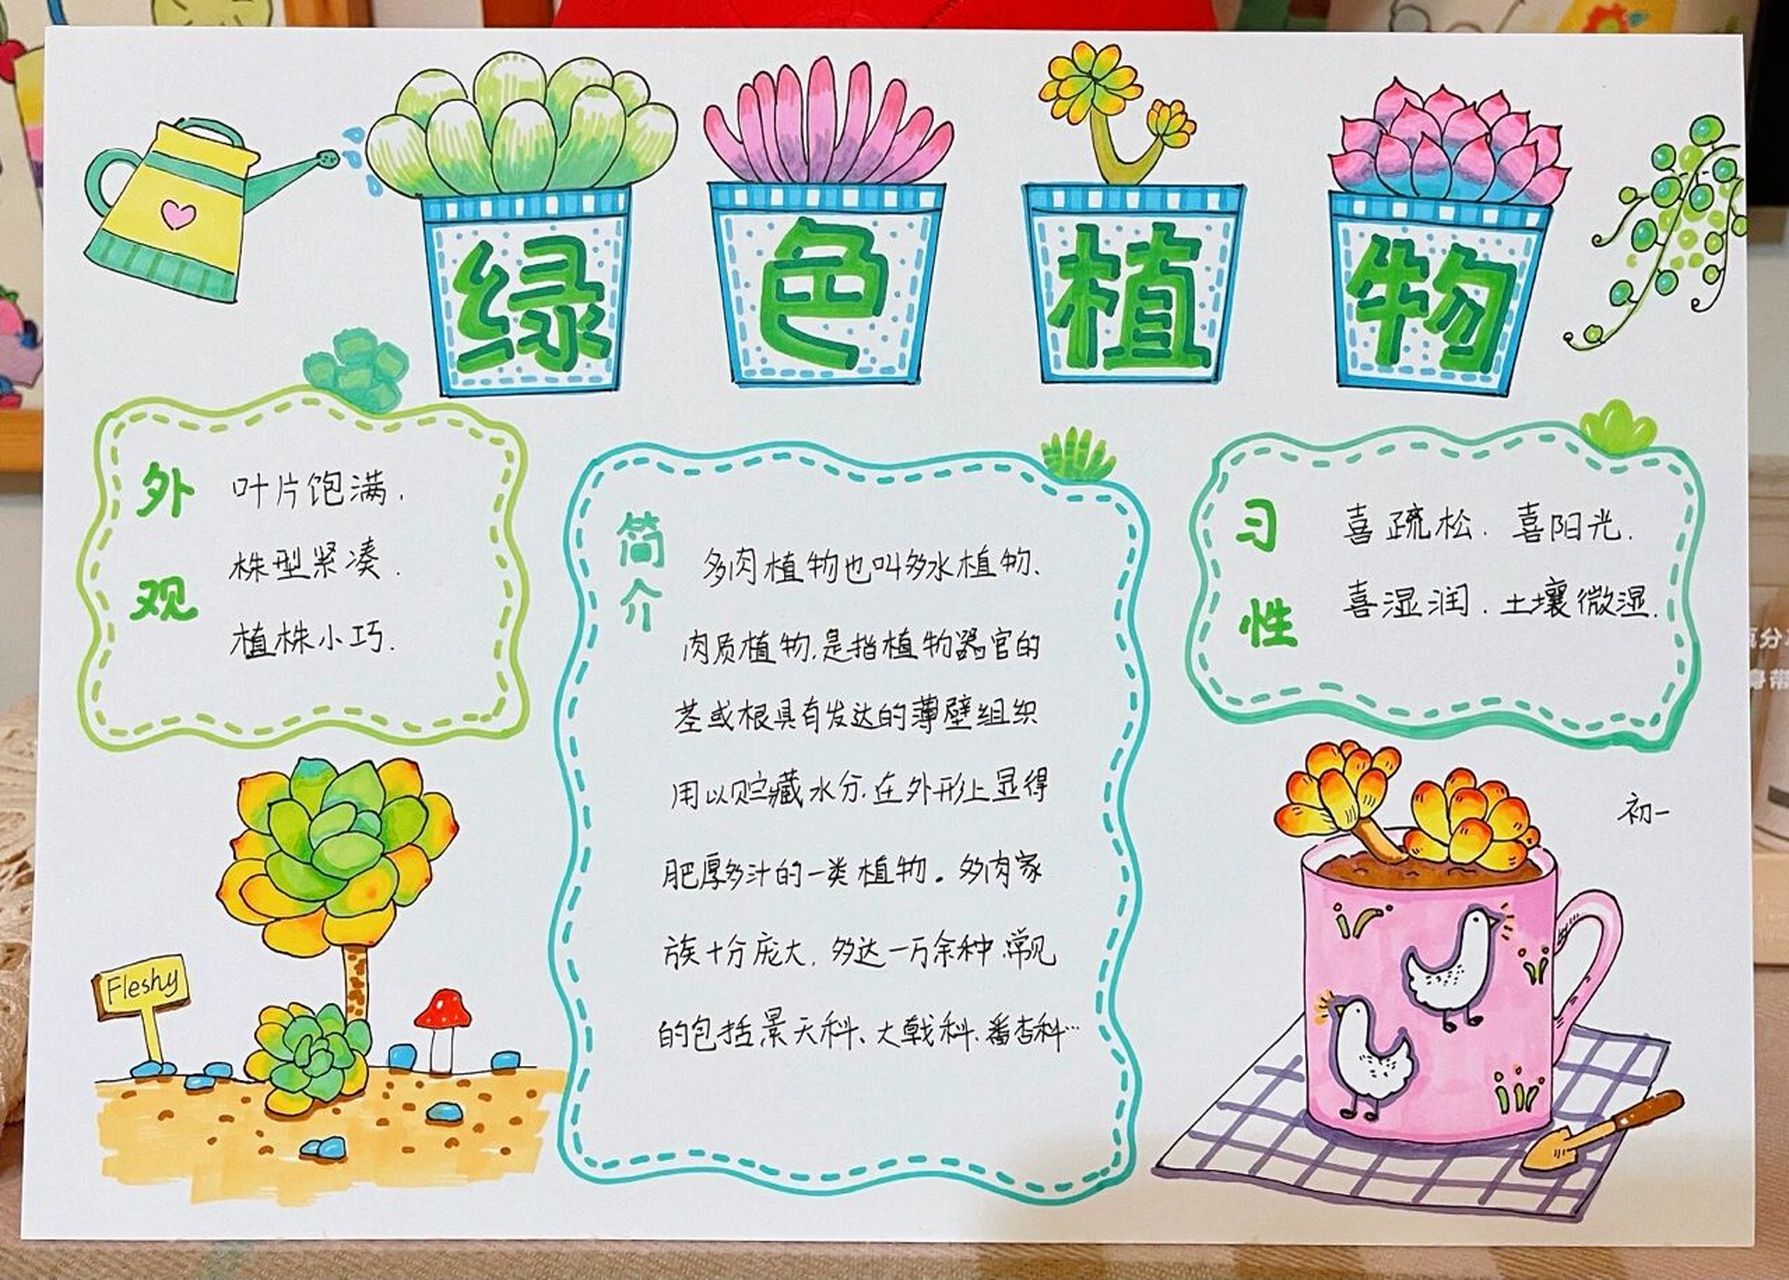 绿色植物
外观
叶片饱满.
株型紧凑.
植株小巧.
简介
多肉植物也叫多水植物、
肉质植物.是指植物器官的
茎或根具有发达的薄壁组织
用以贮藏水分.在外形上显得
肥厚多汁的一类植物。多肉家
族十分庞大.多达一万余种.常见
的包括景天科、大戟科、番杏科…
习性
喜疏松.喜阳光.
喜湿润.土壤微湿.
初一
Fleshy